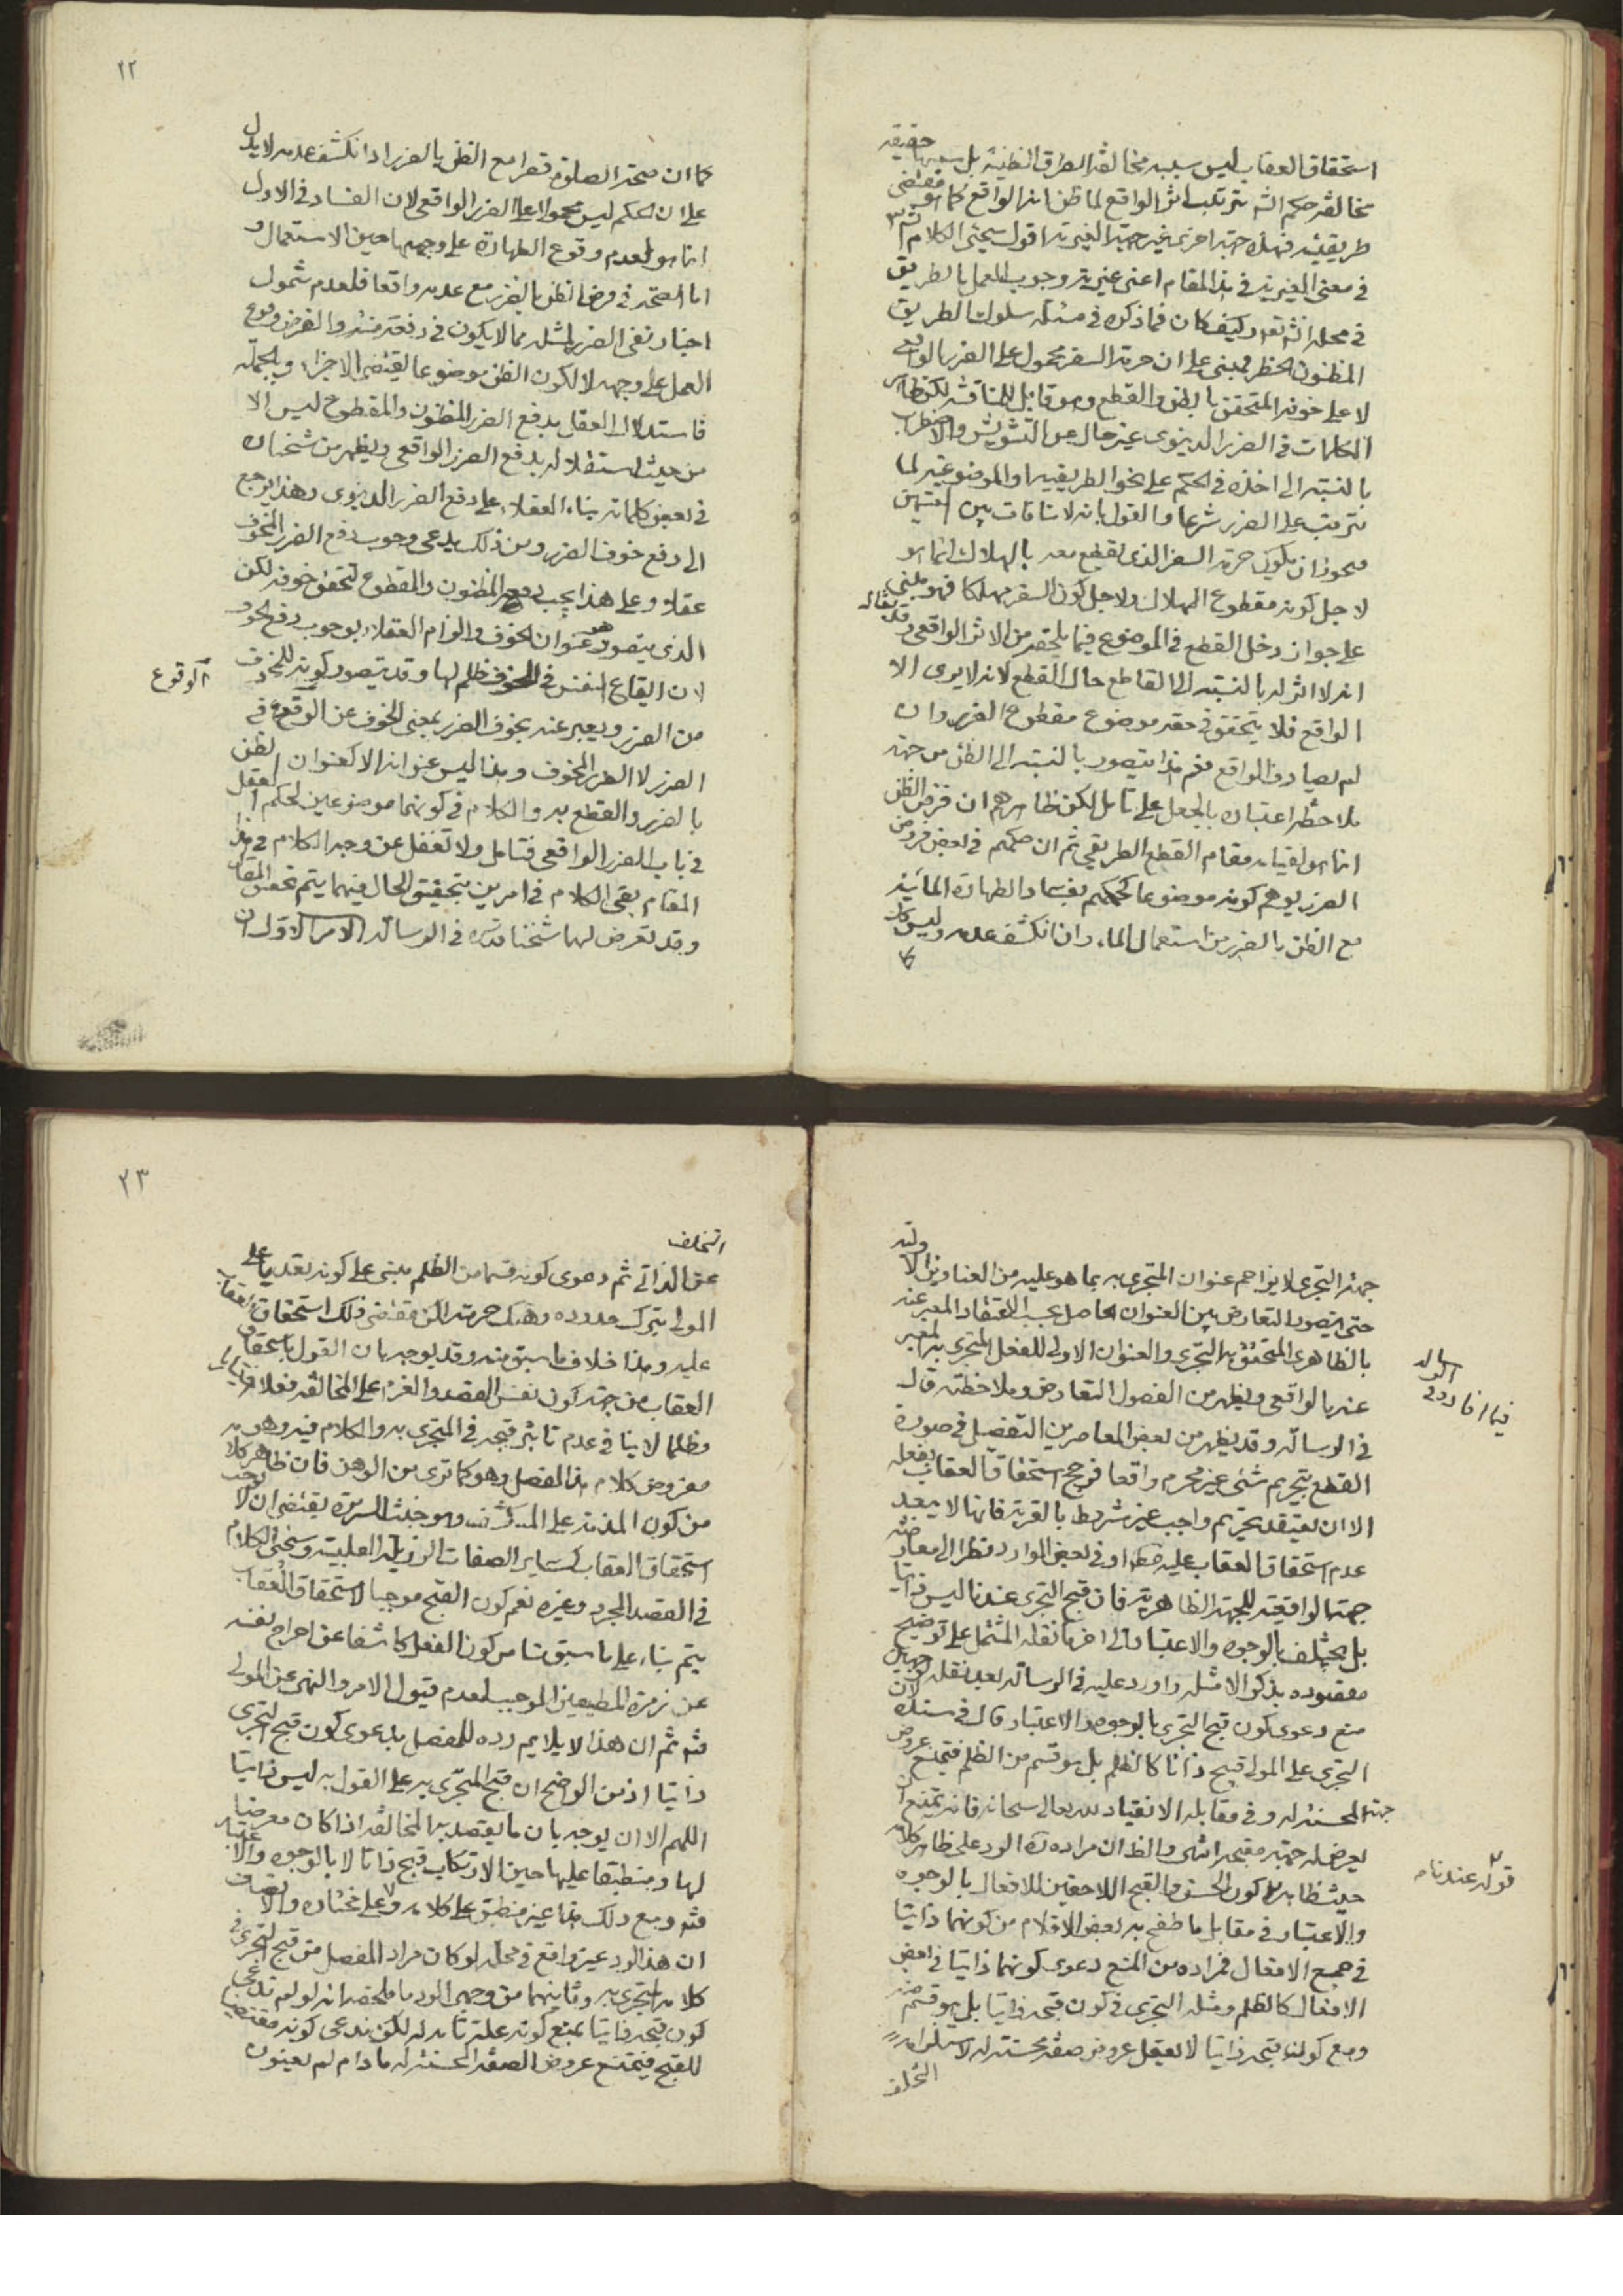 استحقاق العقاب ليس سببه مخالفة الطرق الظنية بل سببها حقيقة
مخالفة حكم الله بترتيب اثر الواقع لما ظن انه الواقع كما هو مقتضى
طريقيته فهذه جهة اخرى غير جهة الغيرية اقول سيجئ الكلام انشاء الله
في معنى الغيرية في هذا المقام اعنى غيرية وجوب العمل بالطريق
في محله انشاء الله تعالى وكيف كان فما ذكره في مسئلة سلوك الطريق
المظنون الخطر فمبنى على ان حرمة السفر محمول على الضرر الواقعى
لا على خوفه المتحقق بالظن والقطع وهو قابل للمناقشة لكن ظاهر
الكلمات في الضرر الدينوى غير خال عن التشويش والاضطراب
بالنسبة الى اخذه في الحكم على نحو الطريقية او الموضوعية لما
يترتب على الضرر شرعا والقول بانه لا منافات بين
فيجوز ان يكون حرمة السفر الذى يقطع معه بالهلاك انما هو
لاجل كونه مقطوع الهلاك ولاجل كون السفر مهلكا فهو مبنى
على جواز دخل القطع في الموضوع فيما يلحقه من الاثر الواقعى وقد يقال
انه لا اثر له بالنسبة الى القاطع حال القطع لانه لا يرى الا
الواقع فلا يتحقق في حقه موضوع مقطوع الضرر وان
لم يصادف الواقع نعم هذا يتصور بالنسبة الى الظن من جهة
ملاحظة اعتباره بالجعل على تامل لكن ظاهرهم ان فرض الظن
انما هو لقيامه مقام القطع الطريقى ثم ان حكمهم في بعض فروض
الضرر يوهم كونه موضوعا كحكمهم بفساد الطهارة المائية
مع الظن بالضرر من استعمال الماء وان انكشف عدمه وليس كك
٢٢
كما ان صحة الصلوة قصرا مع الظن بالضرر اذا انكشف عدمه لا يدل
على ان الحكم ليس محمولا على الضرر الواقعى لان الفساد في الاول
انما هو لعدم وقوع الطهارة على وجهها حين الاستعمال و
اما الصحة في فرض الظن بالضرر مع عدمه واقعا فلعدم شمول
اخبار نفى الضرر لمثله مما لا يكون في رفعه منة والفرض وقوع
العمل على وجهه لا لكون الظن موضوعا يقتضى الاجزاء وبالجملة
فاستدلال العقل بدفع الضرر المظنون والمقطوع ليس الا
من حيث استقلاله بدفع الضرر الواقعى ويظهر من شخناره
في بعض كلماته بناء العقلاء على دفع الضرر الدينوى وهذا يرجع
الى دفع خوف الضرر ومن ذلك يدعى وجوب دفع الضرر المخوف
عقلا وعلى هذا يجب دفع المظنون والمقطوع لتحقق خوفه لكن
الذى يتصور هو عنوان الخوف والزام العقلاء بوجوب دفع الخوف
لان ايقاع النفس في الخوف ظلم لها وقد يتصور كونه للخوف
من الضرر ويعبر عنه بخوف الضرر بمعنى الخوف عن الوقوع في
الوقوع
الضرر لا الضرر المخوف وهذا ليس عنوانه الا كعنوان الظن
بالضرر والقطع به والكلام في كونهما موضوعين لحكم العقل
في باب الضرر الواقعى فتامل ولا تغفل عن وجه الكلام في هذا
المقام بقى الكلام في امرين بتحقيق الحال فيهما يتم تحقيق المقام
وقد تعرض لهما شخنا قدس سره في الرسالة الامر الاول ان
جهة التجرى لا يزاحم عنوان المتجرى به بما هو عليه من العناوين الاولية
حتى يتصور التعارض بين العنوان الحاصل بحسب الاعتقاد المعبر عنه
بالظاهرى المتحقق به التجرى والعنوان الاولى للفعل المتجرى به المعبر
عنه بالواقعى ويظهر من الفصول التعارض وملاحظته قال
في الرسالة وقد يظهر من بعض المعاصرين التفصيل في صورة
القطع بتحريم شئ غير محرم واقعا فرجح استحقاق العقاب بفعله
الا ان يعتقد تحريم واجب غير مشروط بالقربة فانه لا يبعد
عدم استحقاق العقاب عليه مطلقا او في بعض الموارد نظرا الى معارضة
جهة الواقعية للجهة الظاهرية فان قبح التجرى عندنا ليس ذاتيا
بل يختلف بالوجوه والاعتبارات الى اخر ما نقله المشتمل على توضيح
مقصوده بذكر الامثلة واورد عليه في الرسالة بعد نقله بوجهين
منع دعوى كون قبح التجرى بالوجوه والاعتبار قال في سنده لان
التجرى على المولى قبيح ذاتا كالظلم بل هو قسم من الظلم فيمتنع عروض
جهة المحسنة له وفي مقابله الانقياد لله تعالى سبحانه فانه يمتنع ان
يعرض له جهة مقبحة انتهى والظ ان مراده ره الرد على ظاهر كلامه
قوله عندنا
حيث ظاهره كون الحسن والقبح اللاحقين للافعال بالوجوه
والاعتبار في مقابل ما طفح به بعض الاقلام من كونهما ذاتيا
في جميع الافعال فمراده من المنع دعوى كونهما ذاتيا في بعض
الافعال كالظلم ومثله التجرى في كون قبحه ذاتيا بل هو قسم منه
ومع كون قبحه ذاتيا لا يعقل عروض صفة محسنة له لاستلزامه
التخلف
٢٣
التخلف
عن الذاتى ثم دعوى كونه قسما من الظلم مبنى على كونه تعديا على
المولى بترك حدوده وهتك حرمته لكن مقتضى ذلك استحقاق العقاب
عليه وهذا خلاف ما سبق منه وقد يوجه بان القول باستحقاق
العقاب من جهة كون نفس القصد والعزم على المخالفة فعلا قبيحا
وظلما لا ينافى عدم تاثير قبحه في المتجرى به والكلام فيه وهو
مفروض كلام هذا المفصل وهو كما ترى من الوهن فان ظاهر كلامه
من كون المذمة على المنكشف وهو خبث السريرة يقتضى ان لا يوجب
استحقاق العقاب كساير الصفات الرذيلة القلبية وسيجئ الكلام
في القصد المجرد وغيره نعم كون القبح موجبا لاستحقاق العقاب
يتم بناء على ما سبق منا من كون الفعل كاشفا عن اخراج نفسه
عن زمرة المطيعين الموجب لعدم قبول الامر والنهى عن المولى
ثم ان هذا لا يلايم رده للمفصل بدعوى كون قبح التجرى
ذاتيا اذ من الواضح ان قبح المتجرى به على القول به ليس ذاتيا
اللهم الا ان يوجه بان ما يقصد به المخالفة اذا كان معرضا
لها ومنطبقا عليها حين الارتكاب قبيح ذاتا لا بالوجوه والاعتبار
ومع ذلك هذا غير منطبق على كلامه وعلى مختاره والانصاف
ان هذا الرد غير واقع في محله لو كان مراد المفصل من قبح التجرى في
كلامه المتجرى به وثانيهما من وجهى الرد ما ملخصه انه لو لم ندعى
كون قبحه ذاتيا بمنع كونه علة تامة له لكن ندعى كونه مقتضيا
للقبح فيمتنع عروض الصفة المحسنة له ما دام لم يعنون